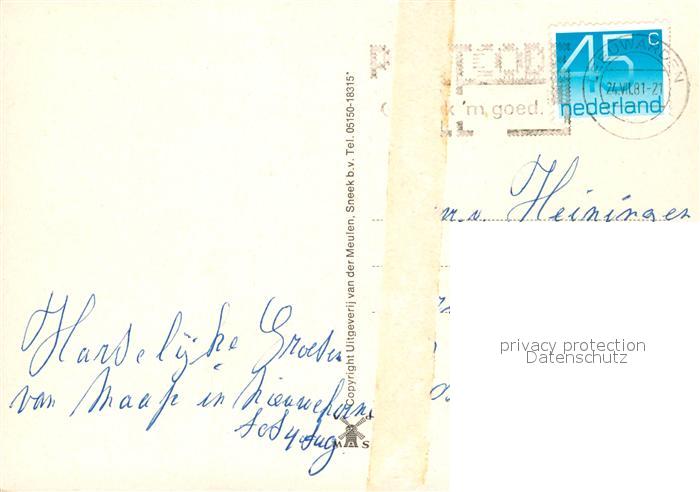 45 c
nederland
LEEUWARDEN
24.VII.81-21
'm goed.
v. Heiningen
Copyright Uitgeverij van der Meulen, Sneek b.v. Tel. 05150-18315*
Hartelijke Groeten
van Maap in
tot 4 Aug
MAS
privacy protection
Datenschutz